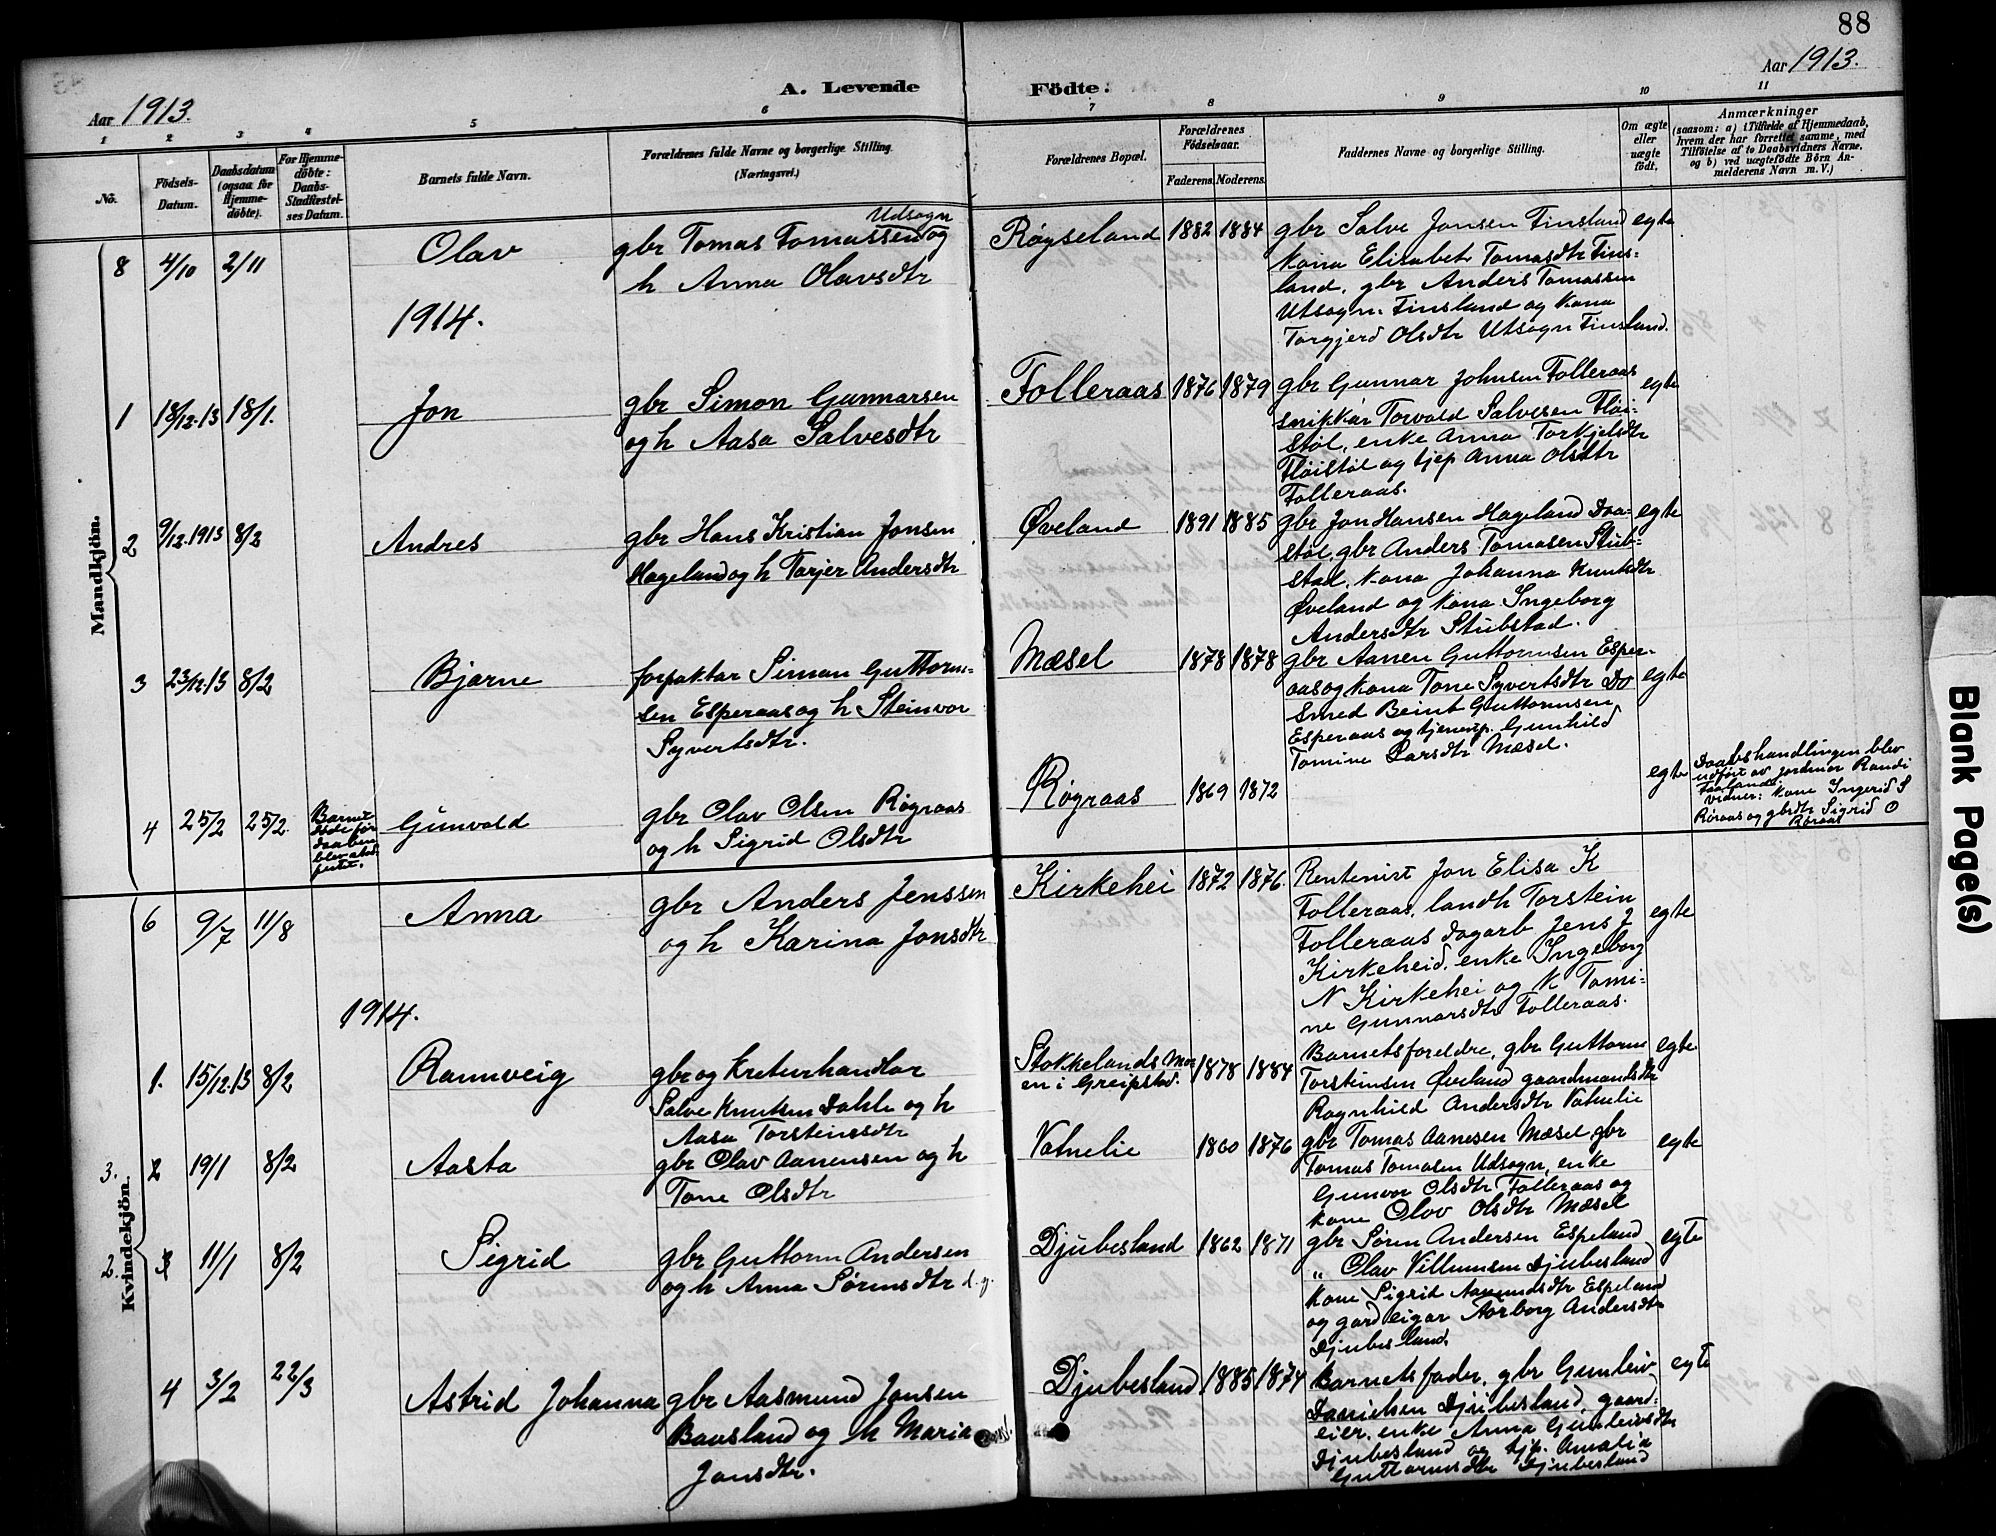 88
Aar 1913.
A. Levende Födte:
Aar 1913.
1 2 3 4 5 6 7 8 9 10 11
No.
Födsels-Datum.
Daabsdatum (ogsaa for Hjemme-döbte).
For Hjemme-döbte: Daabs-Stadfæstel-ses Datum.
Barnets fulde Navn.
Forældrenes fulde Navne og borgerlige Stilling.
(Næringsvei.)
Forældrenes Bopæl.
Forældrenes Födselsaar.
Faderens. Moderens.
Faddernes Navne og borgerlige Stilling.
Om ægte eller uægte födt.
Anmærkninger
(saasom: a) i Tilfælde af Hjemmedaab,
hvem der har forrettet samme, med
Tilföielse af to Daabsvidners Navne,
og b) ved uægtefödte Börn An-
melderens Navn m. V.)
Mandkjön.
8 4/10 2/11 Olav
gbr Tomas Tomassen Udsogn og
h Anna Olavsdtr
Røyseland 1882 1884
gbr Salve Jonsen Finsland
kona Elisabet Tomasdtr Fins-
land, gbr Anders Tomassen
Utsogn. Finsland og kona
Torgjerd Olsdtr Utsogn Finsland.
egte
1914.
1 18/12.13 18/1. Jon
gbr Simon Gunnarsen
og h Aasa Salvesdtr
Folleraas 1876 1879
gbr Gunnar Johnsen Folleraas
snikkar Torvald Salvesen Fløi-
støl, enke Anna Torkjelsdtr
Fløistøl og tjep Anna Olsdtr
Folleraas.
egte
2 9/12.1913 8/2 Andres
gbr Hans Kristian Jonsen
Hageland og h Torjer Andersdtr
Øveland 1891 1885
gbr Jon Hansen Hageland Daa-
støl, gbr Anders Tomasen Stub-
stad, kona Johanna Knutsdtr
Øveland og kona Ingeborg
Andersdtr Stubstad.
egte
3 23/12.13 8/2 Bjarne
forpaktar Simon Guttorm-
sen Esperaas og h Steinvor
Syvertsdtr.
Mæsel 1878 1878
gbr Aanen Guttormsen Esper-
aas og kona Tone Syvertsdtr Do
Smed Beint Guttormsen
Esperaas og tjenerp. Gunhild
Tomine Larsdtr Mæsel.
egte
4 25/2 25/2
Barnet
døde før
daaben
blev stad-
festet.
Gunvald
gbr Olav Olsen Røgraas
og h Sigrid Olsdtr
Røgraas 1869 1872
egte
Daabshandlingen blev
udført av jordmor Randi
Faaland
vidner: kone Ingerid S
Røraas og gbrdtr Sigrid O
Røraas
Kvindekjön.
6 9/7 11/8 Anna
gbr Anders Jenssen
og h Karina Jonsdtr
Kirkehei 1872 1876.
Rentenist Jon Elisa K
Folleraas, landh Torstein
Folleraas dagarb Jens J
Kirkeheid, enke Ingeborg
N Kirkehei og k Tomi-
ne Gunnarsdtr Folleraas.
egte
1914.
1. 15/12.13 8/2 Rannveig
gbr og kreturhandlar
Salve Knutsen Dahle og h
Aasa Torsteinsdtr
Stokkelands Mo-
en i Greipstad. 1878 1884
Barnetsforeldre, gbr Guttorm
Torsteinsen Øveland gaardmandsdtr
Ragnhild Andersdtr Vatnelie
egte
3. 2 19/1 8/2 Aasta
gbr Olav Aanensen og h
Tone Olsdtr
Vatnelie 1860 1876
gbr Tomas Aanesen Mæsel, gbr
Tomas Tomasen Udsogn, enke
Gunvor Olsdtr Folleraas og
kone Olav Olsdtr Mæsel
egte
2. 3 11/1 8/2 Sigrid
gbr Guttorm Andersen
og h Anna Sørensdtr d.y.
Djubesland 1862 1871
gbr Søren Andersen Espeland
" Olav Villumsen Djubesland
kone Sigrid Aanundsdtr Espeland
og gardeigar Torborg Andersdtr
Djubesland.
egte
4 3/2 22/3 Astrid Johanna
gbr Aasmund Jonsen
Bausland og h Maria
Jonsdtr.
Djubesland 1885 1874
Barnets fader, gbr Gunleiv
Danielsen Djubesland, gaard-
eier, enke Anna Gunleivsdtr
Djubesland og tjp. Amalia
Guttormsdtr Djubesland
egte
Blank Page(s)